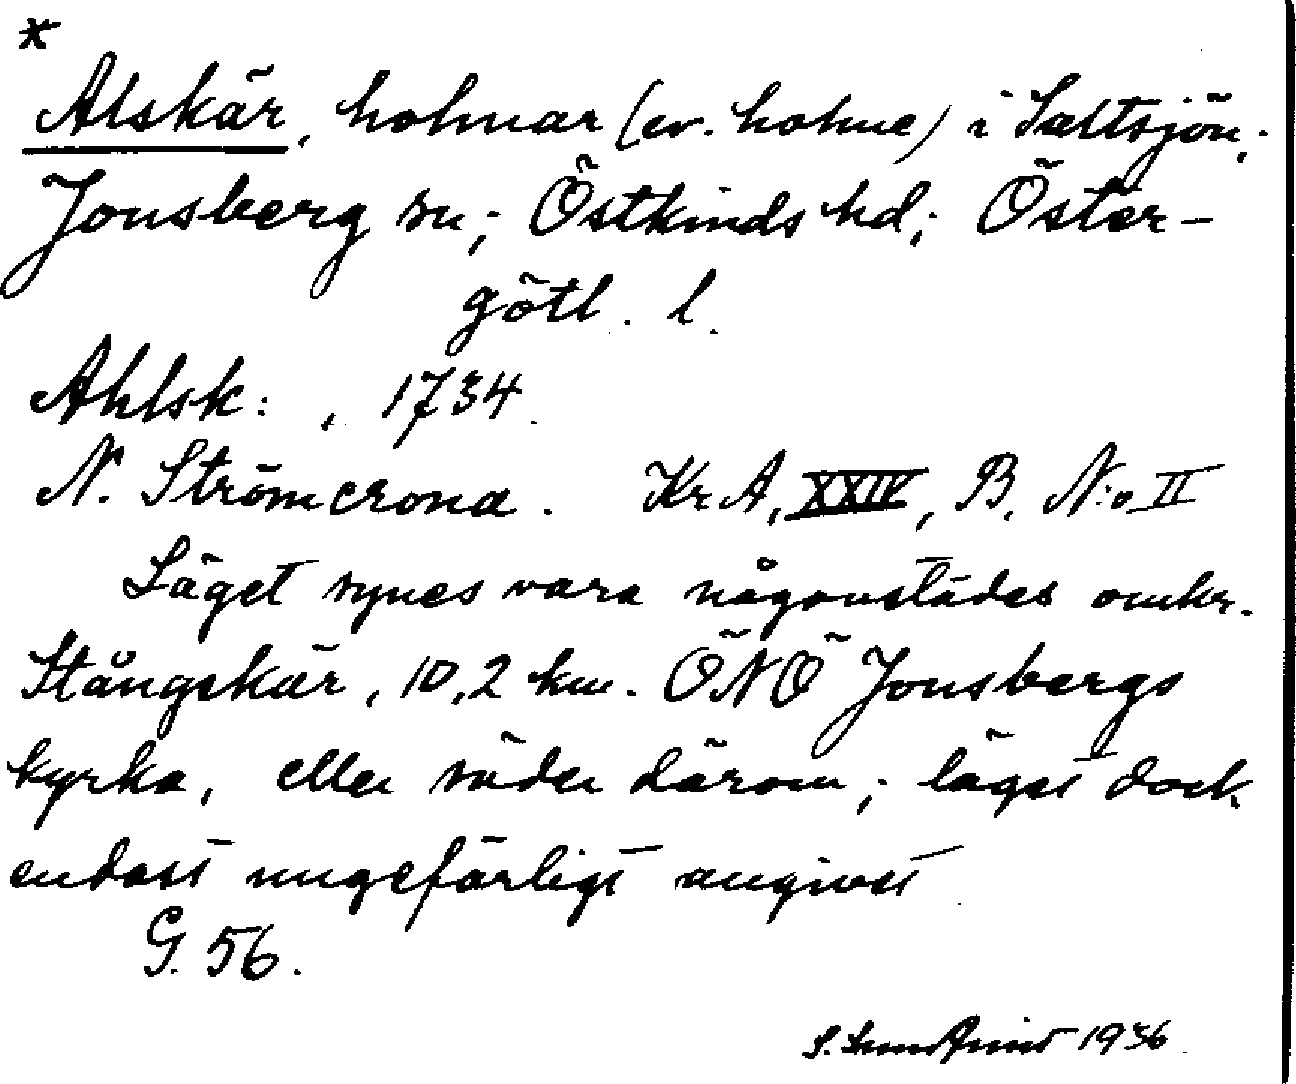 *
Alskär, holmar (ev. holme) i Saltsjön;
Jonsberg sn; Östkinds hd; Öster-
götl. l.
Ahlsk: , 1734.
N. Strömcrona. Kr A, XXIV, B, N:o II
Läget synes vara någonstädes omkr.
Stångskär, 10,2 km. ÖNÖ Jonsbergs
kyrka, eller söder därom; läget dock
endast ungefärligt angivet.
G. 56.
S. 1936